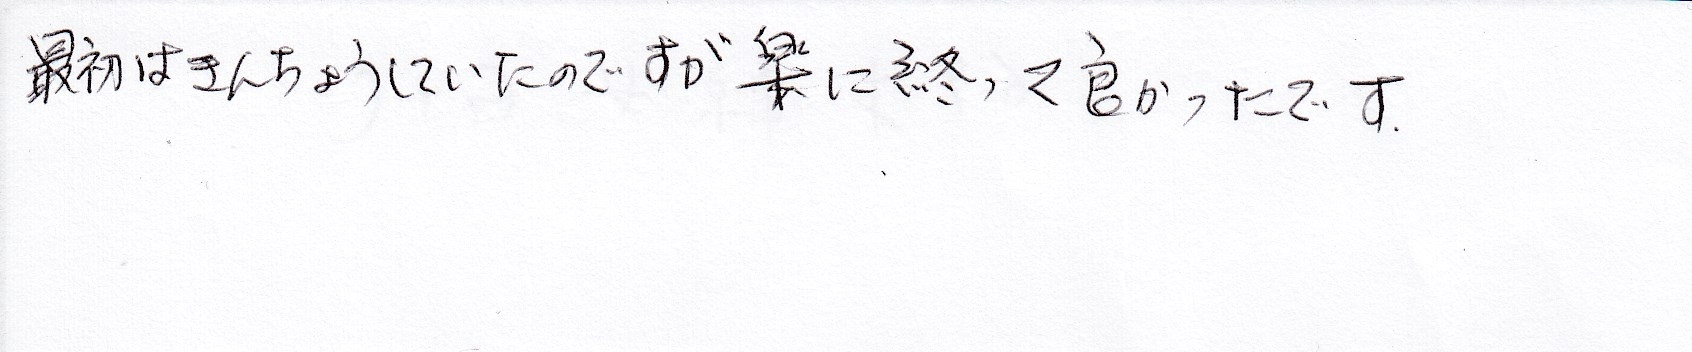 最初はきんちょうしていたのですが楽に終って良かったです.